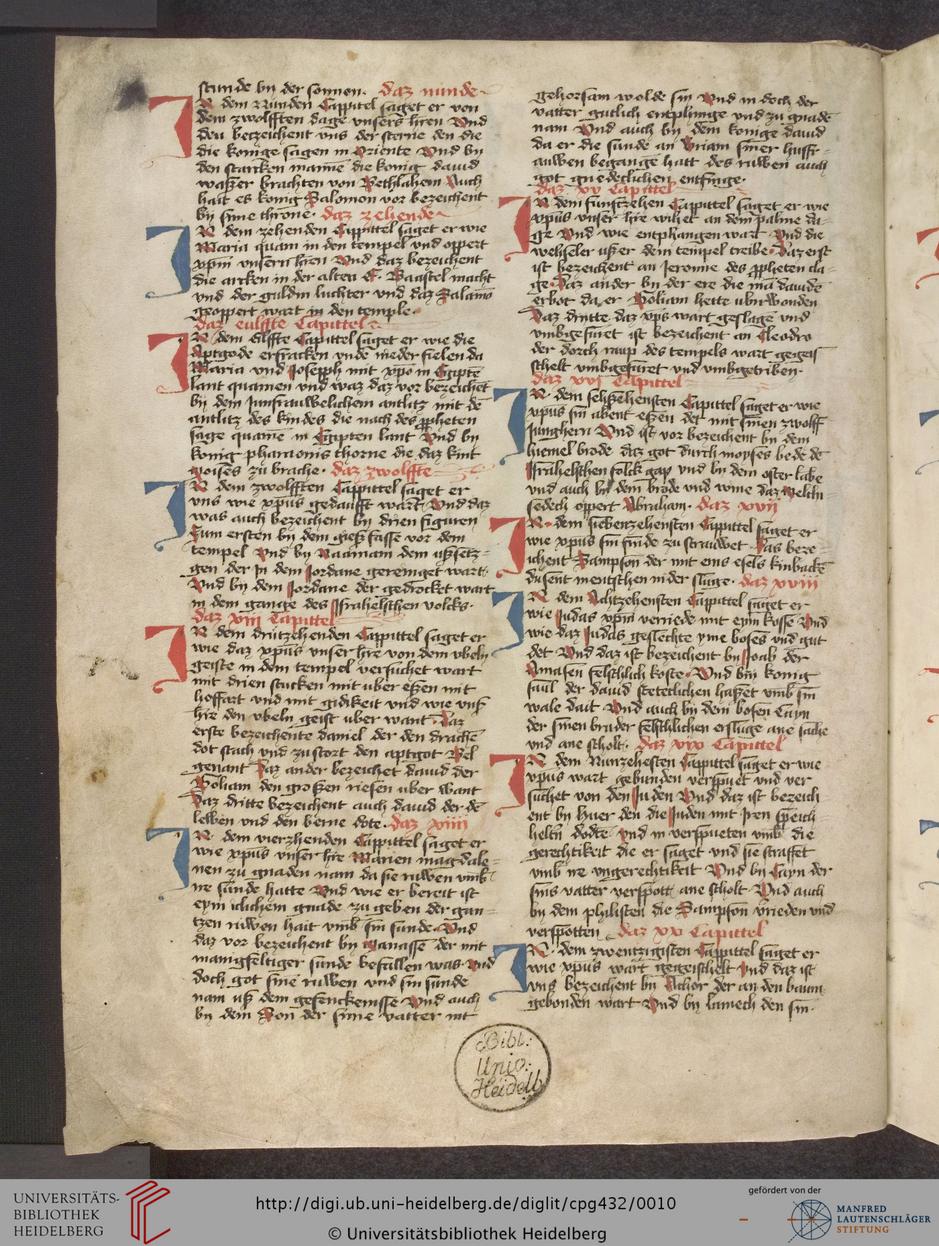 stunde by der sonnen · daz nunde
IN dem Nunden Cappittel saget er von
dem zwolfften dage unsers hren Und
den bezeichent uns der sterne den die
die konige sagen in oriente Und by
den starcken manne die konig dauid
waßer brachten von Bethlahem Auch
hait es konig Salomon vor bezeichent
by sime throne · daz zehende
IN dem zehenden Cappittel saget er wie
Maria quam in den tempel und oppert
xpm unsern hren Und daz bezeichent
die arcken in der alten E
und der guldin luchter und daz Salamo
geoppert wart in den temple ·
daz eulffte Capittel
IN dem Eilfften Capittel saget er wie die
Aptgode erstracken unde nieder fielen da
Maria und Josepph mit xpo in Egipte
lant quamen und waz daz vor bezeichet
by dem Junfrauwelichem antlitz mit de
antlitz des kindes die nach des ppheten
sage quame in Egipten lant Und by
konig pharaonis throne die daz kint
moises zu brache · daz zwolffte
IN dem zwolfften Cappittel saget er
uns wie xpus gedaufft wart Und daz
was auch bezeichent by drien figuren
Zum ersten by dem gieß fasse vor dem
tempel Und by Naaman dem ußsetz
gen der in dem Jordane gereiniget wart
Und by dem Jordane der gedrocket wart
in dem gange des Israhelschen volcks ·
daz xiii Capittel
IN dem druzehenden Cappittel saget er
wie daz xpus unser hre von dem ubeln
geiste in dem tempel versuchet wart
mit drien stucken mit uber eßen mit
hoffart und mit gidikeit und wie unß
hre den ubeln geist uber want · Daz
erste bezeichente daniel der den drachē
dot stach und zustort den aptgot Bel
genant Daz ander bezeichet dauid der
Goliam den großen riesen uber want
Daz dritte bezeichent auch dauid der dē
lewen und den beren dote · daz xiiii
IN dem vierzhenden Cappittel saget er
wie xpus unser hre Marien magdale
nen zu gnaden nam da sie ruwen umb
ire sunde hatte Und wie er bereit ist
eym iclichem gnade zu geben der gan
tzen ruwen hait umb sin sunde Und
daz vor bezeichent by Manasse der mit
manigfeltiger sunde befallen was Und
doch got sine ruwen und sin sunde
nam uß dem gefenckenisse Und auch
by dem Son der sime vatter nit
gehorsam wolde sin Und in doch der
vatter gutlich entphinge und zu gnade
nam Und auch by dem konige dauid
da er die sunde an Uriam siner husfr
auwen begange hatt des ruwen auch
got gnedeclichen entfinge ·
daz xv Capittel
IN dem funfczehen Capittel saget er wie
xpus unser hre wihet an dem palme da
ge Und wie entphangen wart Und die
wehseler uß er dem tempel treibe · Daz erst
ist bezeichent an Jeronime des ppheten da
ge Daz ander by der ere die mā dauide
erbot da er Goliam hette ubirwonden
Daz dritte daz xps wart geslage und
umbgefuret ist bezeichent an Cleodro
der dorch raup des tempels wart gegeis
schelt umbgefuret und umbgetriben ·
daz xvi Capittel
IN dem sehßehensten Capittel saget er wie
xpus sin abent eßen det mit sinen zwolff
Junghern Und ist vor bezeichent by dem
hiemel brode daz got durch moyses bede de
Israhelschen folck gap und by dem oster labe
und auch by dem brode und wine daz Melchi
sedech oppert Abraham · daz xvii
IN dem siebenzehensten Capittel saget er
wie xpus sin finde zu strauwet Das beze
ichent Sampson der mit eins esels kinbacke
dusent mentschen nider sluge · daz xviii
IN dem Achtzehensten Cappittel saget er
wie Judas xpm verriede mit eym kosse Und
wie daz Judas geslechte yme boses umb gut
det Und daz ist bezeichent by Joab der
Amasan felschlich koste · Und by konig
saul der dauid stetetlichen haßet umb sin
wale dait Und auch by dem bosen Cayn
der sinen bruder felschlichen ersluge ane sache
und ane scholt · daz xix Capittel
IN dem Nunzehesten Cappittel saget er wie
xpus wart gebunden verspuet und ver
suchet von den Juden Und daz ist bezeich
ent by Huer den die Juden mit Iren speich
heln dodte Und in verspueten umb die
gerechtikeit die er saget und sie straffet
umb ire ungerechtikeit Und by Cayn der
sins vatter verspott ane scholt Und auch
by dem philisten die Sampson vrieden und
verspotten daz xx Capittel
IN dem zwentzigisten Cappittel saget er
wie xpus wart gegeischelt Und daz ist
uns bezeichent by Achior der an den baum
gebonden wart Und by lamech den sin
Bibl:
Univ:
Heidelb
UNIVERSITÄTS-
BIBLIOTHEK
HEIDELBERG
http://digi.ub.uni-heidelberg.de/diglit/cpg432/0010
© Universitätsbibliothek Heidelberg
gefördert von der
MANFRED
LAUTENSCHLÄGER
STIFTUNG